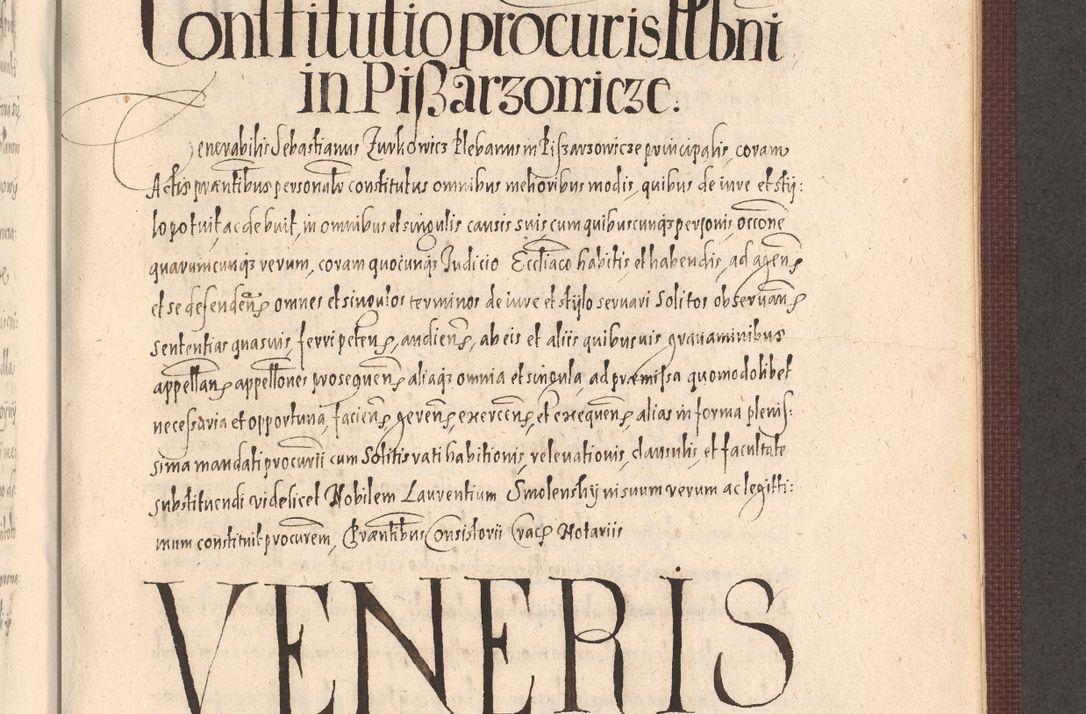 Constitutio procuris Plbni
in Pißarzowicze.
Venerabilis Sebastianus Zurkowicz Plebanus in Pißarzowicze principalis, coram
Actis præntibus personalr constitutus omnibus melioribus modis, quibus de iure et sty:
lo potuit, ac debuit, in omnibus et singulis causis suis cum quibuscunqз personis, occone
quarumcunqз rerum, coram quocunqз Iudicio Eccliaco habitis et habendis, ad agens
et se defendens omnes et singulos terminos de iure et stylo seruari solitos obseruans
sententias quasuis, ferri petens, audiens, ab eis et aliis quibusuis grauaminibus
appellans appellones prosequens aliaqз omnia et singula, ad præmissa quomodolibet
necessaria et opportuna, faciens, gerens, exercens, et exequens, alias in forma plenis:
sima mandati procurii cum solitis rati habitionis, releuationis, clausulis, et facultate
substituendi videlicet Nobilem Laurentium Smolenskij in suum verum ac legitti:
mum constituit procurem, Præntibus Consistorii Crac Notariis
VENERIS